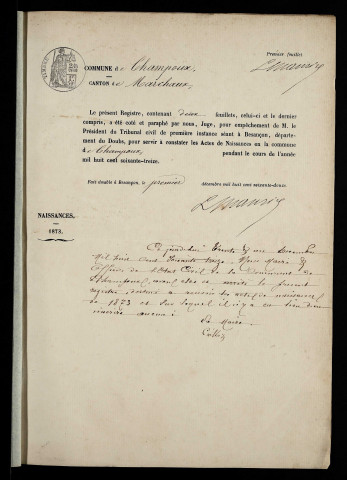 Premier feuillet
COMMUNE de Champoux,
CANTON de Marchaux
Le présent Registre, contenant deux feuillets, celui-ci et le dernier
compris, a été coté et paraphé par nous, Juge, pour empêchement de M. le
Président du Tribunal civil de première instance séant à Besançon, départe-
ment du Doubs, pour servir à constater les Actes de Naissances en la commune
de Champoux, pendant le cours de l'année
mil huit cent soixante-treize.
Fait double à Besançon, le premier décembre mil huit cent soixante-douze.
NAISSANCES.
1873.
Ce jourd'hui trente et un Décembre
mil huit cent soixante treize, Nous Maire &
officier de l'Etat Civil de la Commune de
Champoux, avons clos et arrêté le présent
registre, destiné à recevoir les actes de naissances
de 1873 et sur lequel il n'y a eu lieu d'en
inscrire aucun.
Le Maire